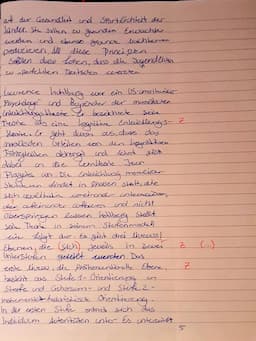 auf der Gesundheit und Sportlichkeit der
Kinder. Sie sollen zu gesunden Erwachsenen
werden und ebenso gesunde
produzieren. All diese Prinzipien
sollen dazu führen, dass alle Jugendlichen
zu Deutschen werden.
Lawrence Kohlberg war ein US-amerikanischer
Psychologe und Begründer der moralischen
Er bezeichnete seine
Theorie als eine kognitive Entwicklungs- Z
theorie. Er geht davon aus, dass das
moralische von den kognitiven
Fähigkeiten abhängt und lehnt sich
dabei an die von Jean
Piaget an. Die Entwicklung moralischer
findet in Phasen statt, die
sich qualitativ voneinander unterscheiden,
aufeinander aufbauen und nicht
überspringen lassen. Kohlberg stellt
seine Theorie in seinem Stufenmodell
Es gibt drei
Ebenen, die (sich) jeweils in zwei Z (...)
Unterstufen geteilt werden. Das
erste Niveau, die Präkonventionelle Ebene, Z
besteht aus Stufe 1 - Orientierung an
Strafe und Gehorsam - und Stufe 2 -
Instrumentell-Relativistische Orientierung.
In der ersten Stufe ordnet sich das
Individuum Autoritäten unter. Es
5